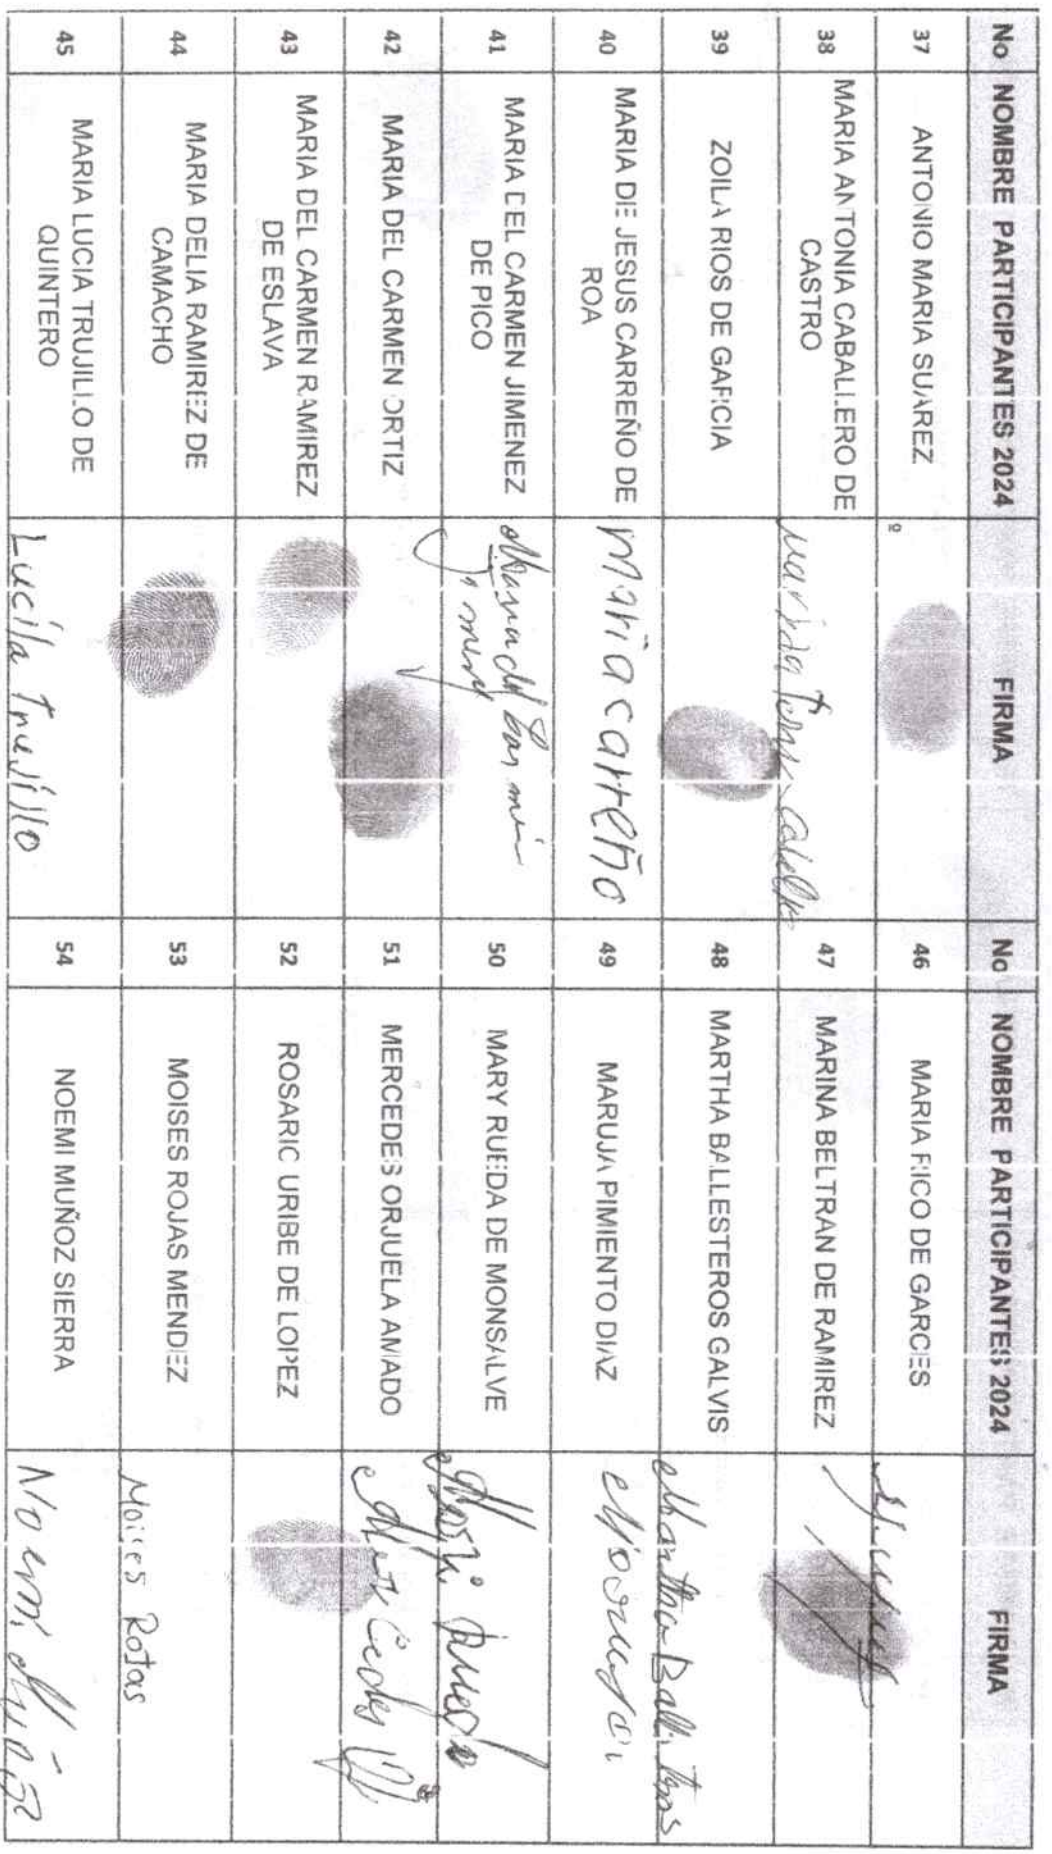 No NOMBRE PARTICIPANTES 2024 FIRMA No NOMBRE PARTICIPANTES 2024 FIRMA
37 ANTONIO MARIA SUAREZ 46 MARIA RICO DE GARCES
38 MARIA ANTONIA CABALLERO DE
CASTRO
47 MARINA BELTRAN DE RAMIREZ
39 ZOILA RIOS DE GARCIA 48 MARTHA BALLESTEROS GALVIS Martha Ballesteros
40 MARIA DE JESUS CARREÑO DE
ROA
maria carreño 49 MARUJA PIMIENTO DIAZ
41 MARIA DEL CARMEN JIMENEZ
DE PICO
50 MARY RUEDA DE MONSALVE
42 MARIA DEL CARMEN ORTIZ 51 MERCEDES ORJUELA AMADO
43 MARIA DEL CARMEN RAMIREZ
DE ESLAVA
52 ROSARIC URIBE DE LOPEZ
44 MARIA DELIA RAMIREZ DE
CAMACHO
53 MOISES ROJAS MENDEZ Moises Rojas
45 MARIA LUCIA TRUJILLO DE
QUINTERO
Lucila Trujillo 54 NOEMI MUÑOZ SIERRA Noemi Muñoz